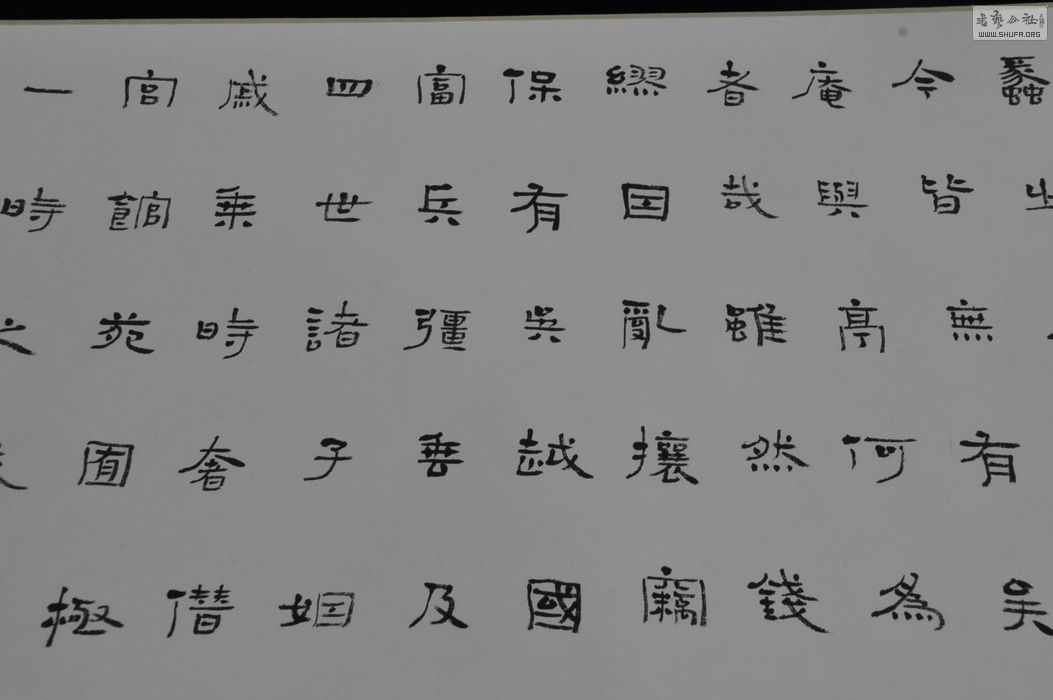 蠡
今皆無有吴
庵與亭何為
者哉雖然錢
繆国亂攘竊
保有吳越國
富兵彊垂及
四世諸子姻
戚乗時奢僭
宮館苑囿極
一時之
書藝公社
WWW.SHUFA.ORG